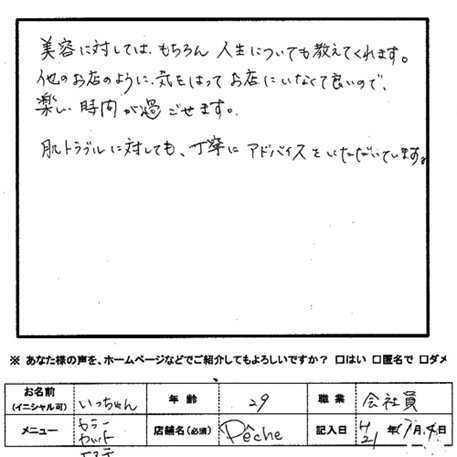 美容に対しては、もちろん 人生についても教えてくれます。
他のお店のように、気をはって お店にいなくて良いので、
楽しい時間が過ごせます。
肌トラブルに対しても、丁寧に アドバイスをいただいています。
※ あなた様の声を、ホームページなどでご紹介してもよろしいですか？ □はい □匿名で □ダメ
お名前(イニシャル可) いっちゃん 年齢 29 職業 会社員
メニュー カラー カット 店舗名(必須) Pêche 記入日 H21年 月 日